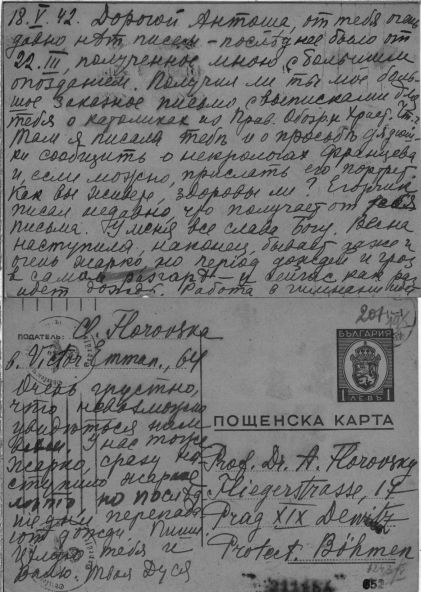 18.V.42. Дорогой Антоша, от тебя очень
давно нѣт писем - послѣднее было от
22.III, полученное мною с большим
опозданием. Получил ли ты мое боль-
шое заказное письмо с выписками для
тебя о католиках из Прав. Обозр. и Христ. Чт.?
Там я писала тебѣ и о просьбѣ дядюш-
ки сообщить о некрологах Францева
и, если можно, прислать его портрет.
Как вы живете, здоровы ли? Егорчик
писал недавно, что получает от тебя
письма. У меня все слава Богу. Весна
наступила, наконец, бывает даже и
очень жарко, но период дождей и гроз
в самом разгарѣ - и сейчас как раз
идет дождь. Работа в гимназии
ПОДАТЕЛЬ: Cl. Florovska
b. Victor Emman., 64
Очень грустно,
что невозможно
увидѣться нам
У нас тоже
жарко, сразу на-
ступило жаркое
лѣто, но послѣд-
ние дни перепада-
ют дожди. Пиши
Цѣлую тебя и
Валю. Твоя Дуся
БЪЛГАРИЯ
1 ЛЕВЪ 1
ПОЩЕНСКА КАРТА
Prof. Dr. A. Florovsky
Fliegerstrasse, 17
Prag XIX Dewitz
Protect. Böhmen
652